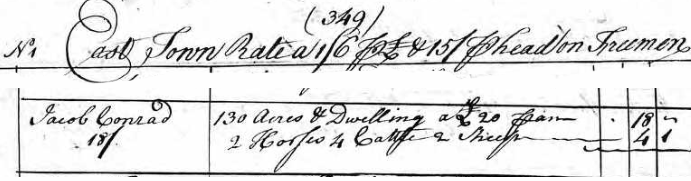 (349)
No. East Town Rate a 1/6 p £ & 15/ p head on Freemen
Jacob Conrad 130 Acres & Dwelling a £20 18 "
18/ 2 Horses 4 Cattle 2 Sheep 4 1